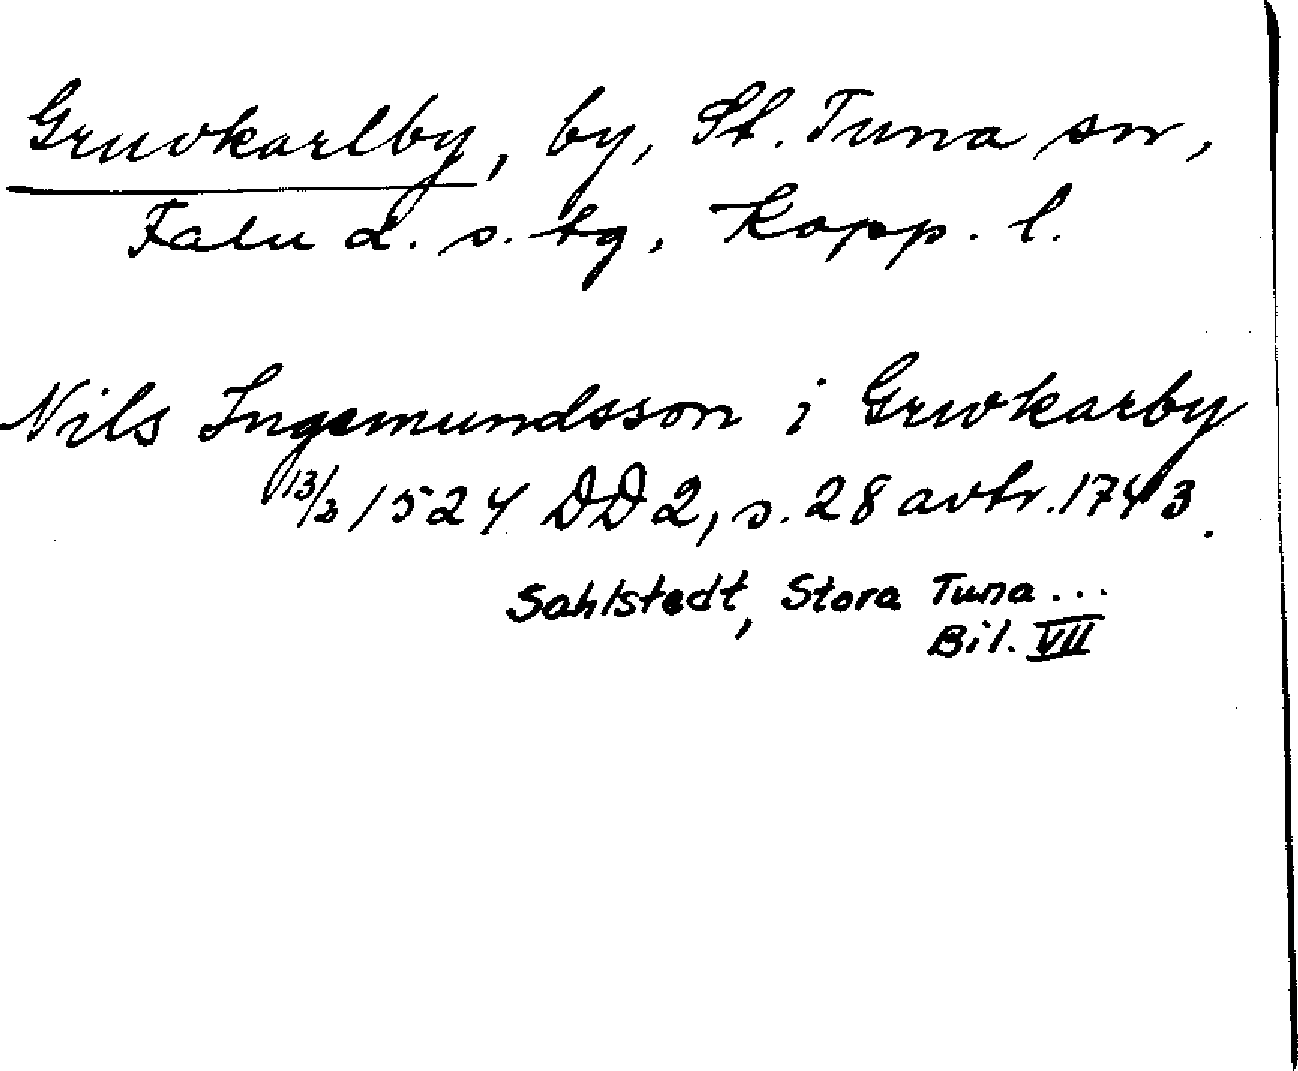 Gruvkarlby, by, St. Tuna sn,
Falu d. s. tg, Kopp. l.
Nils Ingemundsson i Gruvkarby
13/3 1524 DD2, s. 28 avtr. 1743.
Sahlstedt, Stora Tuna ...
Bil. VII